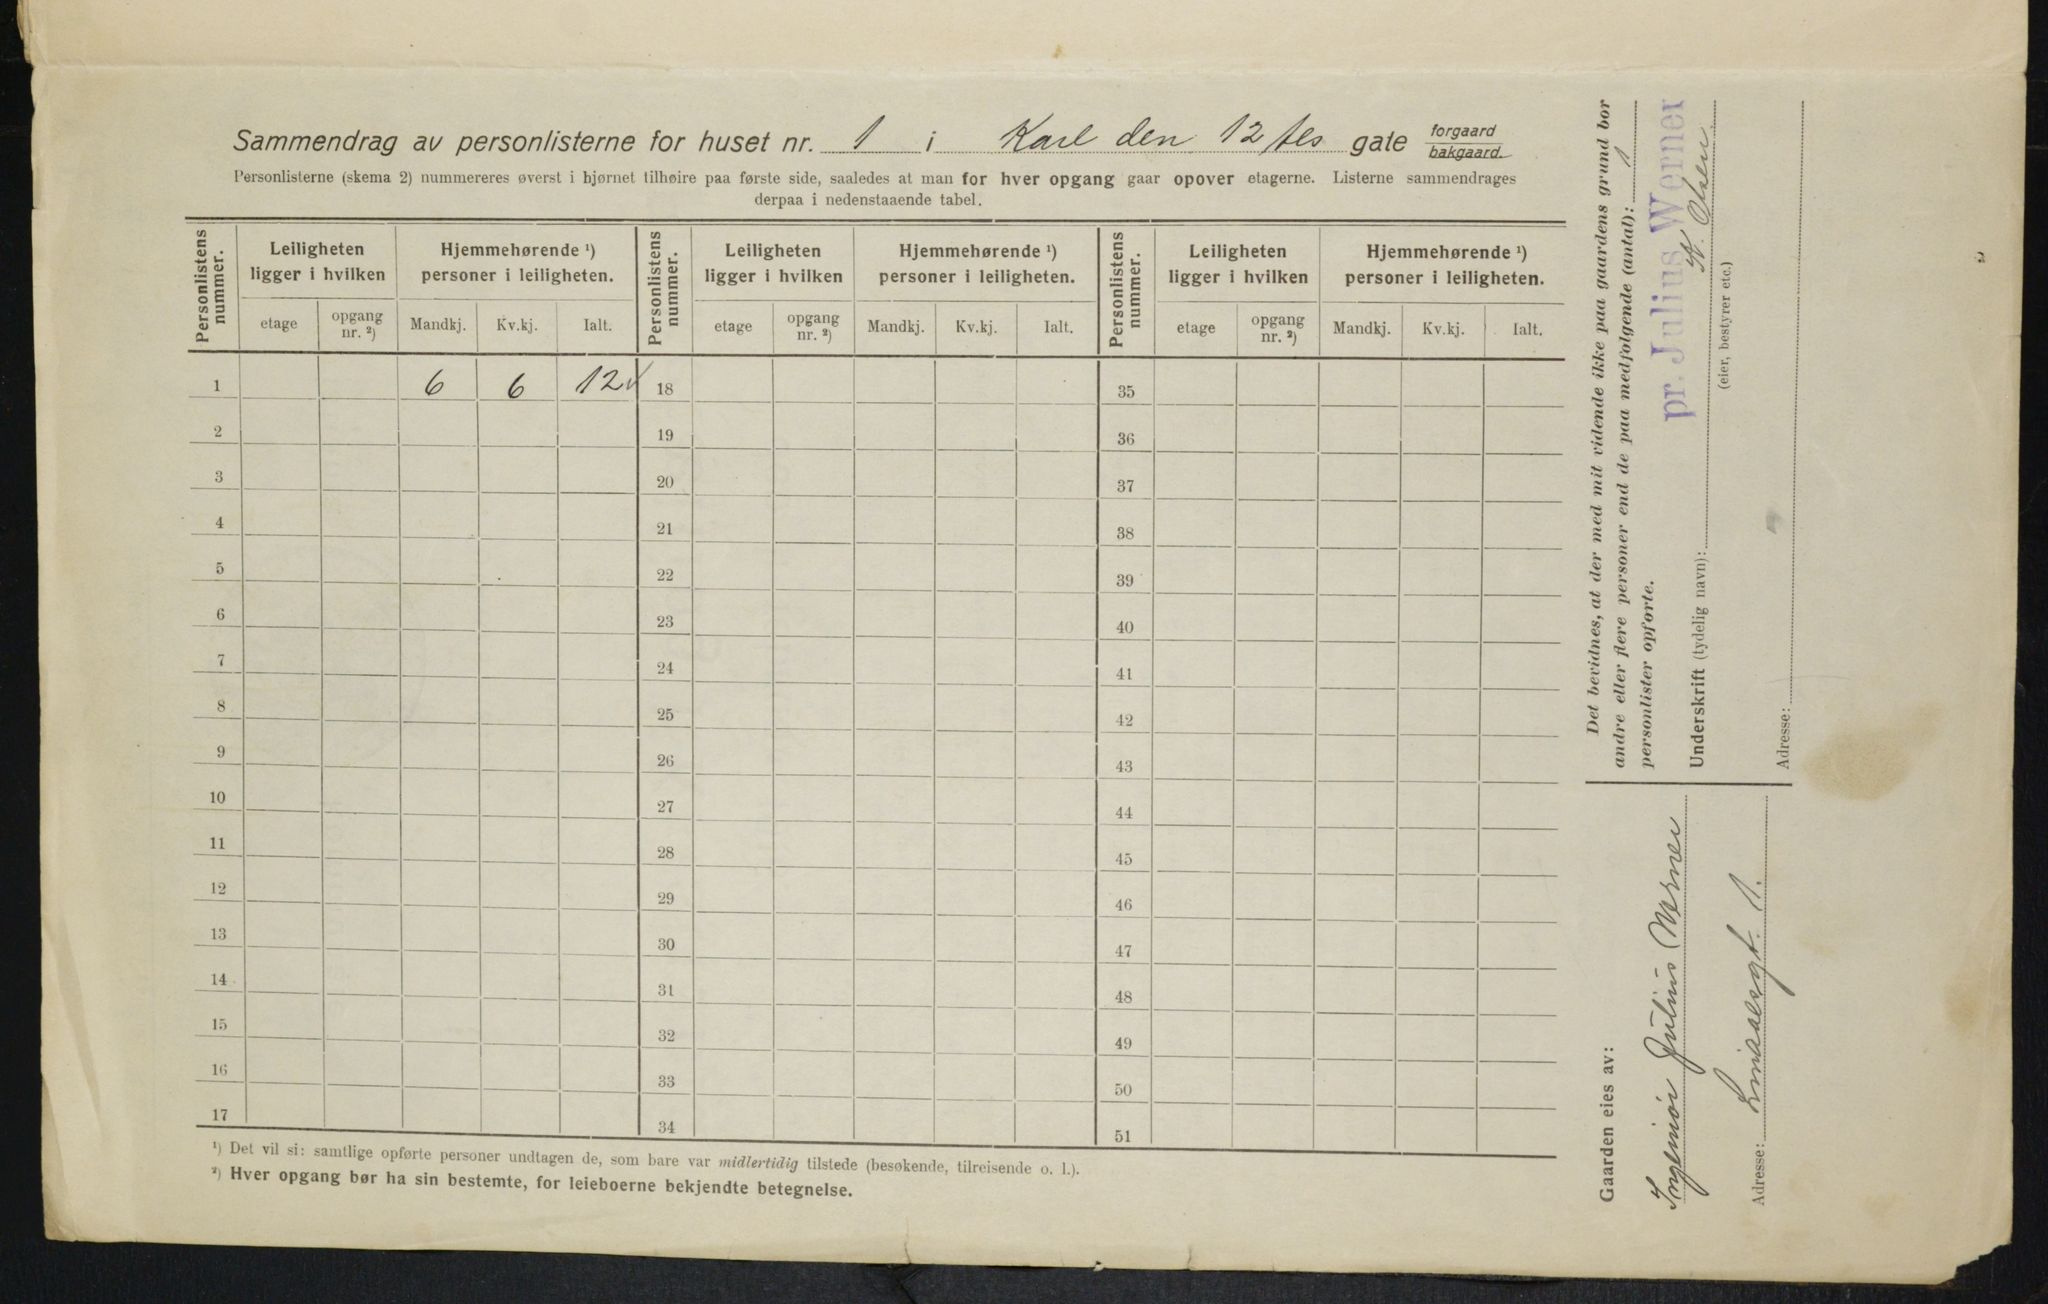 Sammendrag av personlisterne for huset nr. 1 i Karl den 12tes gate forgaard bakgaard
Personlisterne (skema 2) nummereres øverst i hjørnet tilhøire paa første side, saaledes at man for hver opgang gaar opover etagerne. Listerne sammendrages
derpaa i nedenstaaende tabel.
Personlistens nummer. Leiligheten ligger i hvilken Hjemmehørende ¹) personer i leiligheten. Personlistens nummer. Leiligheten ligger i hvilken Hjemmehørende ¹) personer i leiligheten. Personlistens nummer. Leiligheten ligger i hvilken Hjemmehørende ¹) personer i leiligheten.
etage opgang nr. ²) Mandkj. Kv.kj. Ialt. etage opgang nr. ²) Mandkj. Kv.kj. Ialt. etage opgang nr. ²) Mandkj. Kv.kj. Ialt.
1 6 6 12 18 35
2 19 36
3 20 37
4 21 38
5 22 39
6 23 40
7 24 41
8 25 42
9 26 43
10 27 44
11 28 45
12 29 46
13 30 47
14 31 48
15 32 49
16 33 50
17 34 51
¹) Det vil si: samtlige opførte personer undtagen de, som bare var midlertidig tilstede (besøkende, tilreisende o. l.).
²) Hver opgang bør ha sin bestemte, for leieboerne bekjendte betegnelse.
Det bevidnes, at der med mit vidende ikke paa gaardens grund bor
andre eller flere personer end de paa medfølgende (antal): 1
personlister opførte.
pr. Julius Werner
Underskrift (tydelig navn): N. Olsen.
(eier, bestyrer etc.)
Adresse:
Gaarden eies av:
Ingeniør Julius Werner
Adresse: Linaaesgt. 1.